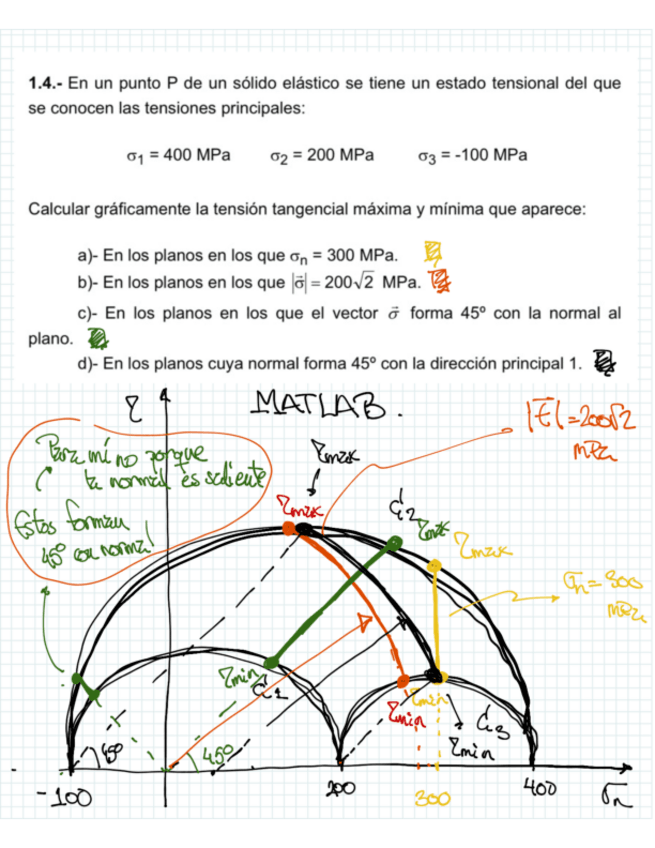 1.4.- En un punto P de un sólido elástico se tiene un estado tensional del que
se conocen las tensiones principales:
σ₁ = 400 MPa σ₂ = 200 MPa σ₃ = -100 MPa
Calcular gráficamente la tensión tangencial máxima y mínima que aparece:
a)- En los planos en los que σₙ = 300 MPa.
b)- En los planos en los que |σ⃗| = 200√2 MPa.
c)- En los planos en los que el vector σ⃗ forma 45º con la normal al
plano.
d)- En los planos cuya normal forma 45º con la dirección principal 1.
MATLAB.
Para mí no porque
la normal es saliente
Estos forman
45º con normal
|t⃗|=200√2
MPa
σn=300
MPa
τ
τmax
τmax
C2
τmax
τmax
τmin
C1
τmin
τmin
C3
τmin
45º
45º
-100
200
300
400
σn